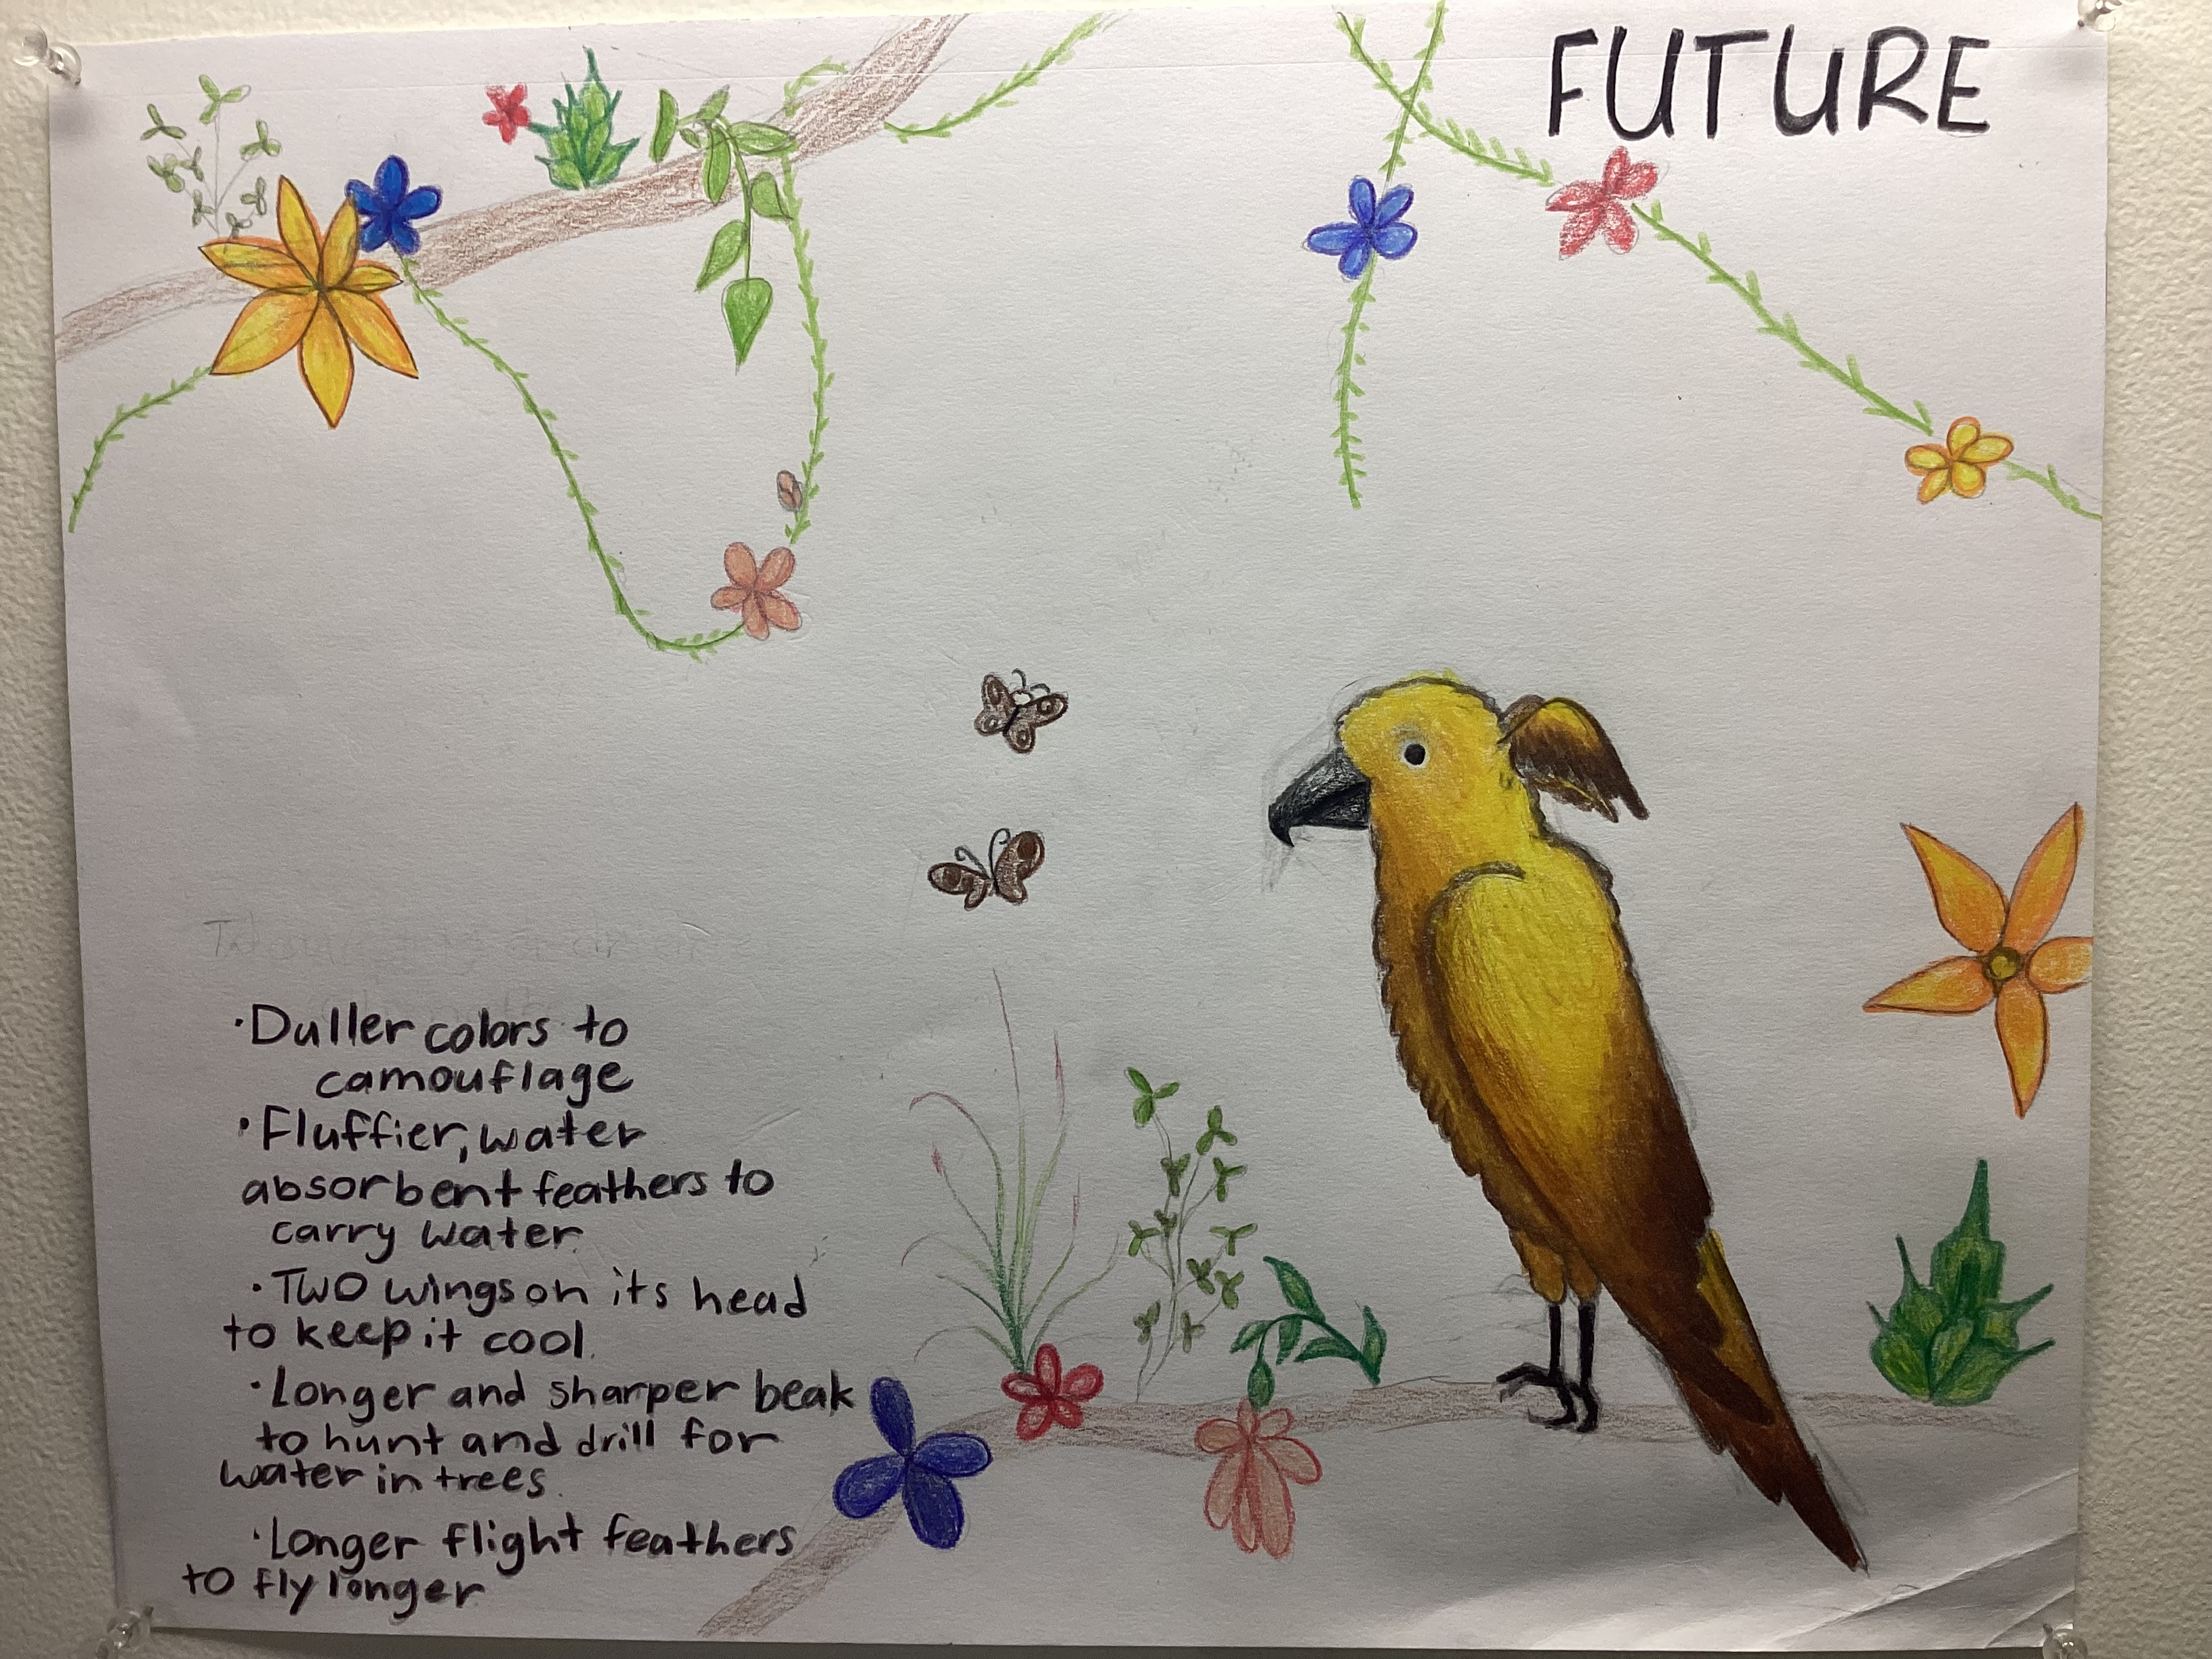 FUTURE
·Duller colors to
camouflage
·Fluffier, water
absorbent feathers to
carry water.
·Two wings on its head
to keep it cool.
·Longer and sharper beak
to hunt and drill for
water in trees.
·Longer flight feathers
to fly longer